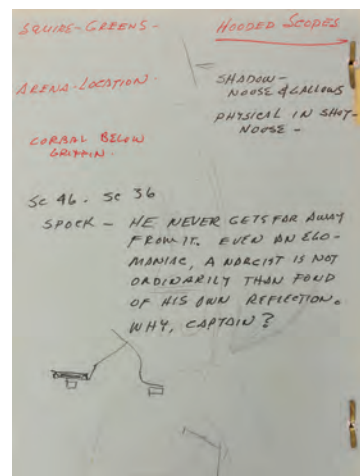 SQUIRE-GREENS-
HOODED SCOPES
ARENA-LOCATION.
SHADOW-
NOOSE & GALLOWS
PHYSICAL IN SHOT-
NOOSE -
CORBAL BELOW
GRIFFIN.
SC 46. SC 36
SPOCK - HE NEVER GETS FAR AWAY
FROM IT. EVEN AN EGO-
MANIAC, A NARCIST IS NOT
ORDINARILY THAN FOND
OF HIS OWN REFLECTION.
WHY, CAPTAIN?